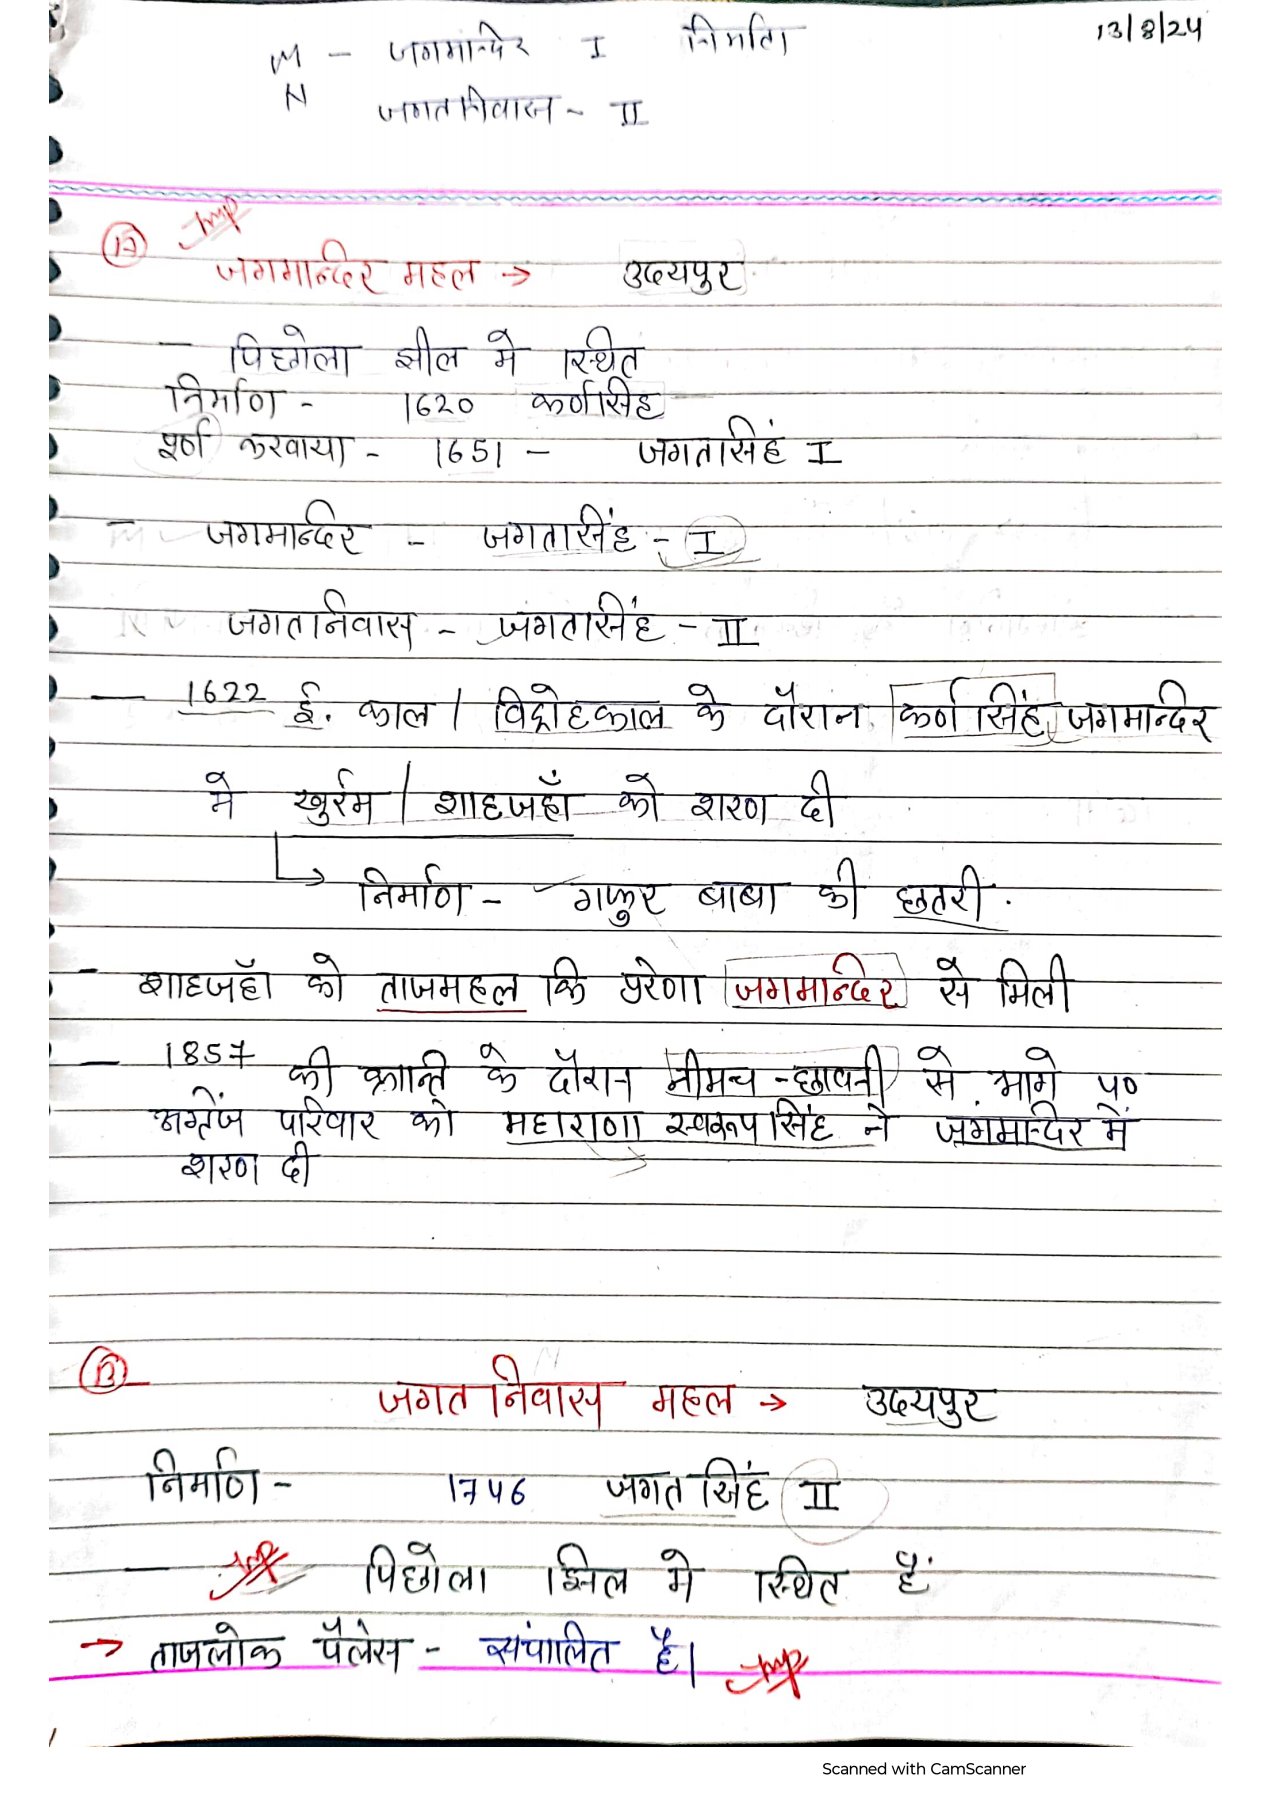 13/8/24
M - जगमान्दिर I निर्माता
N जगतनिवास - II
Imp
जगमान्दिर महल → उदयपुर
- पिछोला झील मे स्थित
निर्माण - 1620 कर्णसिंह
पूर्ण करवाया - 1651 - जगतसिंह I
- जगमान्दिर - जगतसिंह - I
जगतनिवास - जगतसिंह - II
- 1622 ई. काल / विद्रोहकाल के दौरान कर्ण सिंह जगमान्दिर
मे खुर्रम / शाहजहाँ को शरण दी
↳ निर्माण - गफुर बाबा की छतरी.
- शाहजहाँ को ताजमहल कि प्ररेणा जगमान्दिर से मिली
- 1857 की क्रान्ति के दौरान नीमच - छावनी से भागे 40
अग्रेंज परिवार को महाराणा स्वरूप सिंह ने जगमान्दिर में
शरण दी
13
जगत निवास महल → उदयपुर
निर्माण - 1746 जगत सिंह II
- Imp पिछोला झिल मे स्थित है
→ ताजलेक पैलेस - संचालित है। Imp
Scanned with CamScanner